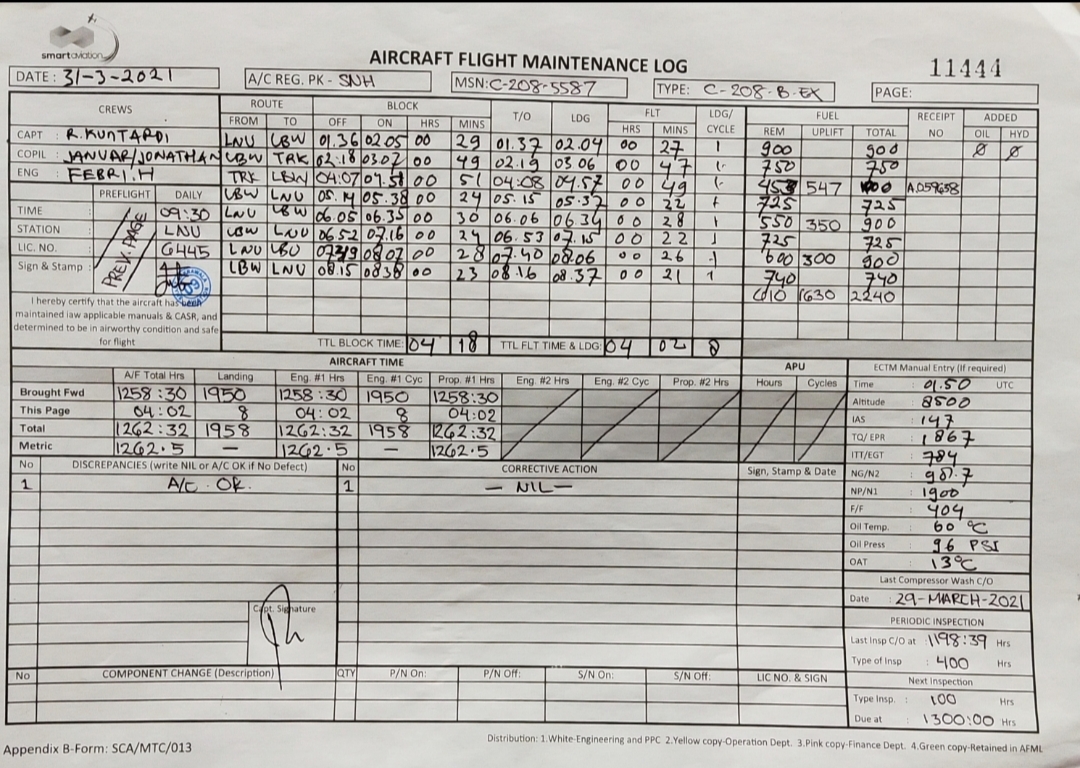 smartaviation
AIRCRAFT FLIGHT MAINTENANCE LOG
11444
DATE : 31-3-2021 A/C REG. PK - SNH MSN: C-208-5587 TYPE: C-208-B.EX PAGE:
CREWS ROUTE BLOCK T/O LDG FLT LDG/ CYCLE FUEL RECEIPT NO ADDED
FROM TO OFF ON HRS MINS HRS MINS REM UPLIFT TOTAL OIL HYD
CAPT : R. KUNTARDI LNU LBW 01.36 02.05 00 29 01.37 02.04 00 27 1 900 900 Ø Ø
COPIL : JANUAR/JONATHAN LBW TRK 02:18 03.07 00 49 02.19 03.06 00 47 1 750 750
ENG : FEBRI.H TRK LBW 04:07 04.58 00 51 04:08 04.57 00 49 1 453 547 A.059658
PREFLIGHT DAILY LBW LNU 05.14 05.38 00 24 05.15 05.37 00 22 1 725 725
TIME : 09:30 LNU LBW 06.05 06.35 00 30 06.06 06.34 00 28 1 550 350 900
STATION : LNU LBW LNU 06.52 07.16 00 24 06.53 07.15 00 22 1 725 725
LIC. NO. : G445 LNU LBW 08.07 00 28 07.40 08.06 00 26 1 600 300 900
Sign & Stamp : PREV. PAGE LBW LNU 08.15 08.38 00 23 08.16 08.37 00 21 1 740 740
610 1630 2240
I hereby certify that the aircraft has been
maintained iaw applicable manuals & CASR, and
determined to be in airworthy condition and safe
for flight
TTL BLOCK TIME: 04 18 TTL FLT TIME & LDG: 04 02 8
AIRCRAFT TIME APU ECTM Manual Entry (If required)
A/F Total Hrs Landing Eng. #1 Hrs Eng. #1 Cyc Prop. #1 Hrs Eng. #2 Hrs Eng. #2 Cyc Prop. #2 Hrs Hours Cycles
Brought Fwd 1258:30 1950 1258:30 1950 1258:30
This Page 04:02 8 04:02 8 04:02
Total 1262:32 1958 1262:32 1958 1262:32
Metric 1262.5 — 1262.5 — 1262.5
Time : 01.50 UTC
Altitude : 8500
IAS : 147
TQ/ EPR : 1867
ITT/EGT : 784
NG/N2 : 98.7
NP/N1 : 1900
F/F : 404
Oil Temp. : 60 °C
Oil Press : 96 PSI
OAT : 13°C
No DISCREPANCIES (write NIL or A/C OK if No Defect) No CORRECTIVE ACTION Sign, Stamp & Date
1 A/C OK. 1 — NIL —
Capt. Signature
Last Compressor Wash C/O
Date : 29-MARCH-2021
PERIODIC INSPECTION
Last Insp C/O at : 1198:39 Hrs
Type of Insp : 400 Hrs
Next Inspection
Type Insp. : 100 Hrs
Due at : 1300:00 Hrs
No COMPONENT CHANGE (Description) QTY P/N On: P/N Off: S/N On: S/N Off: LIC NO. & SIGN
Appendix B-Form: SCA/MTC/013
Distribution: 1.White-Engineering and PPC 2.Yellow copy-Operation Dept. 3.Pink copy-Finance Dept. 4.Green copy-Retained in AFML